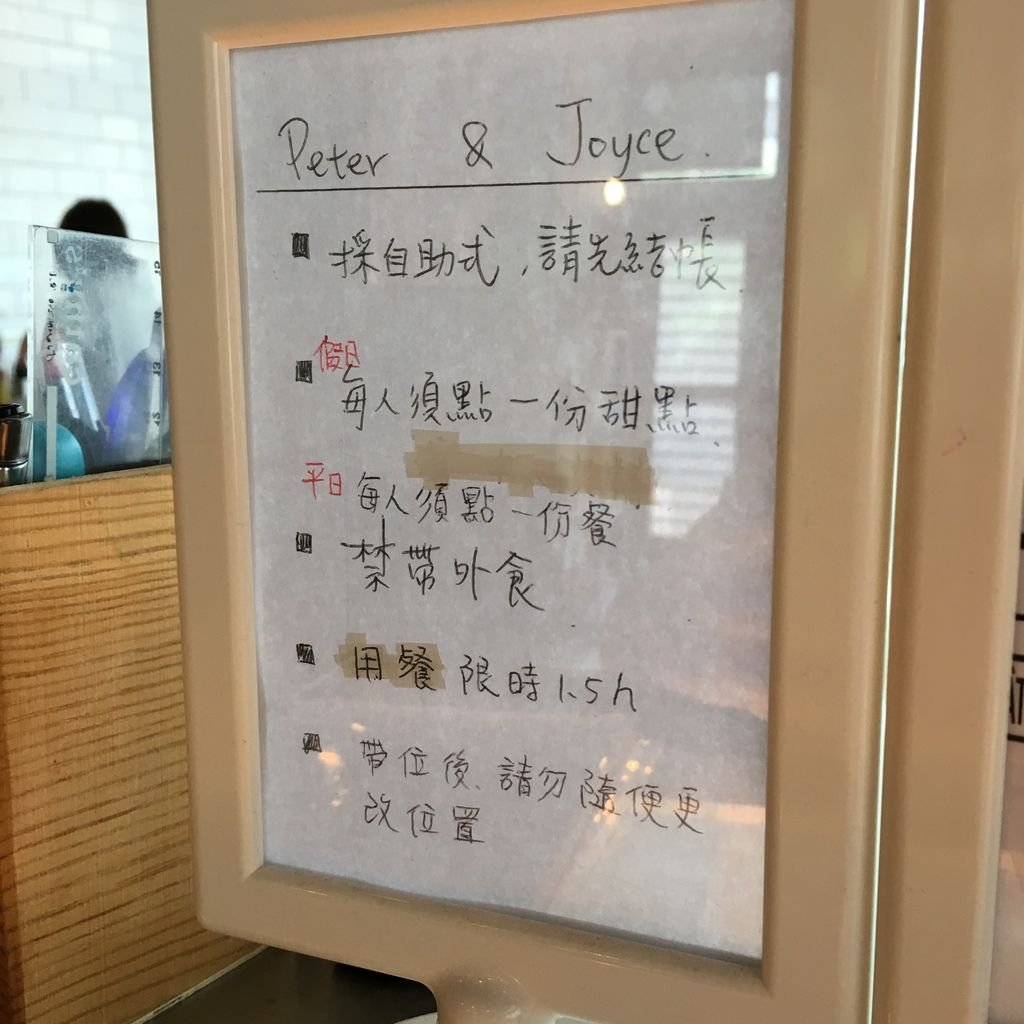 Peter & Joyce.
採自助式,請先結帳.
假日
每人須點一份甜點.
平日 每人須點一份餐
禁帶外食
用餐限時1.5h
帶位後、請勿隨便更
改位置